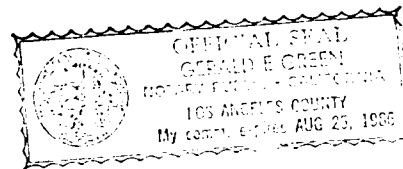 OFFICIAL SEAL
GERALD E GREEN
NOTARY PUBLIC - CALIFORNIA
LOS ANGELES COUNTY
My comm. expires AUG 25, 1986